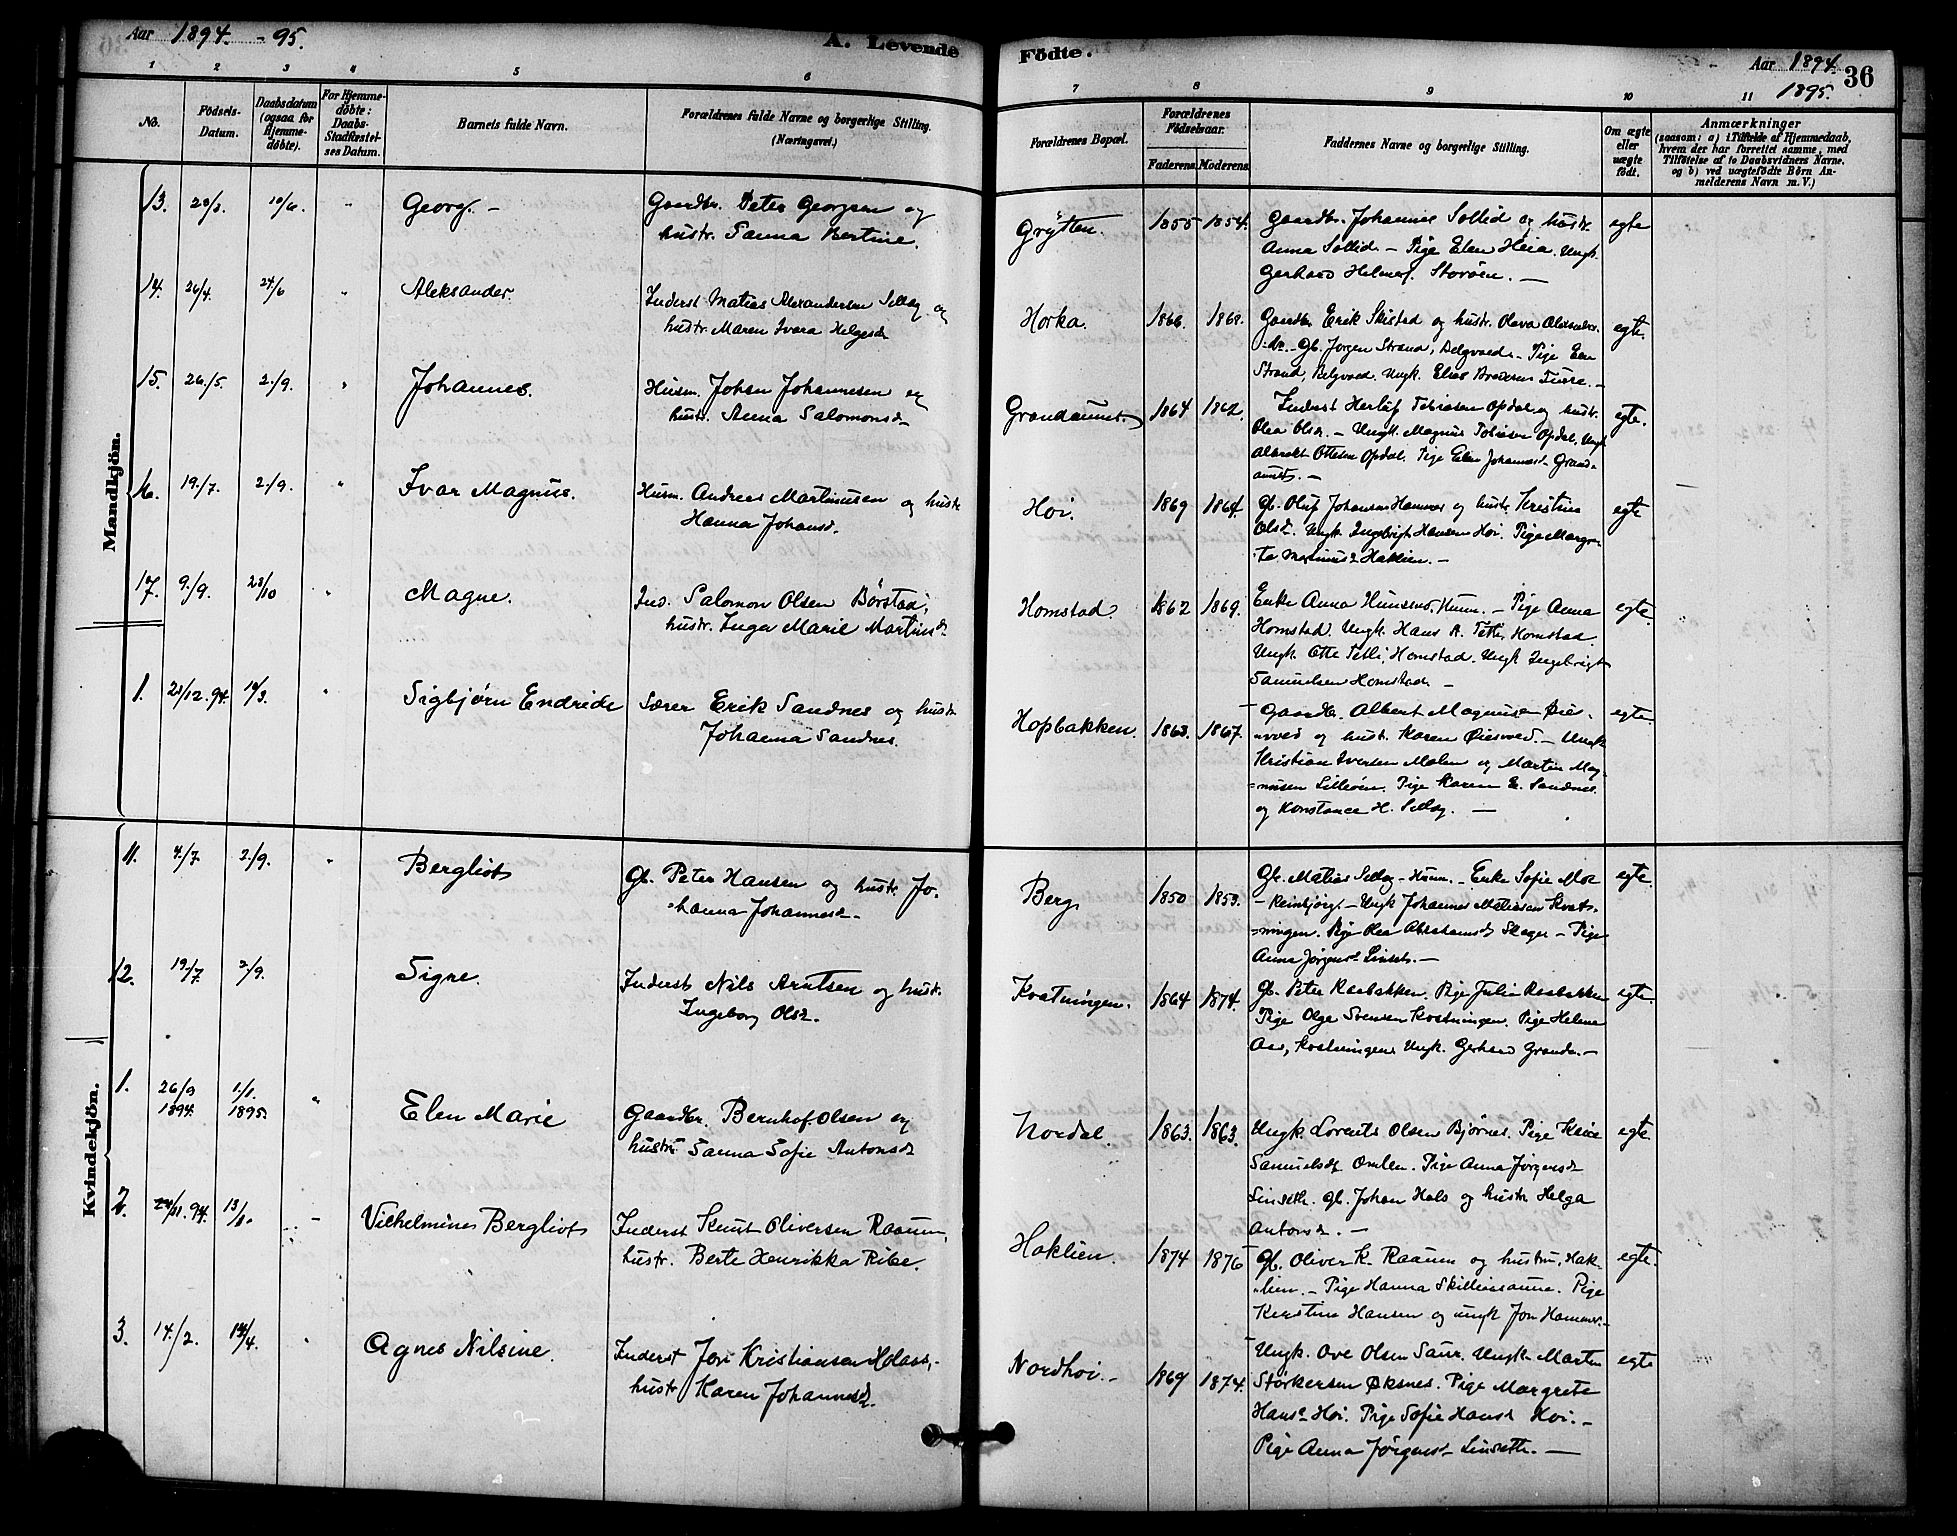 Aar 1894. - 95.
A. Levende
Födte.
Aar 1894.
1895.
36
1 2 3 4 5 6
7 8 9 10 11
No.
Födsels-
Datum.
Daabsdatum
(ogsaa for
Hjemme-
döbte).
For Hjemme-
döbte:
Daabs-
Stadfæstel-
ses Datum.
Barnets fulde Navn.
Forældrenes fulde Navne og borgerlige Stilling.
(Næringsvei.)
Forældrenes Bopæl.
Forældrenes
Födselsaar.
Faderens. Moderens.
Faddernes Navne og borgerlige Stilling.
Om ægte
eller
uægte
födt.
Anmærkninger
(saasom: a) i Tilfælde af Hjemmedaab,
hvem der har forrettet samme, med
Tilföielse af to Daabsvidners Navne.
og b) ved uægtefödte Börn An-
melderens Navn m. V.)
Mandkjön.
13.
Georg. -
Gaardbr. Peter Georgsen og
hustr. Sanna Bertine.
Grytten.
1855 1854.
Gaardbr. Johannes Sollid og hustr.
Anna Sollid - Pige Elen Heia. Ungk.
Storöen. -
egte
14. 26/4. 24/6
Aleksander.
Inderst Matias Alexandersen Selleg og
hustr. Maren Ivara Helgesd
Horka.
1866. 1868.
Gaardbr. Erik Skistad og hustr. Olava
Gb. Jorgen Strand, Pige Elen
Strand, Ungk. Elias
egte.
15. 26./5. 2./9.
Johannes.
Husm. Johan Johannesen og
hustr. Anna Salomonsd
Grandaunet.
1864 1862.
Inderst Herlöf Tobiasen Opdal og hustr.
Olea Olsd. - Ungk. Magnus Tobiasen Opdal. Ungk
Albrekt Ottesen Opdal. Pige Elen Johannesd Grand-
aunet. -
egte.
16. 19./7. 2./9.
Ivar Magnus.
Husm. Andreas Martinusen og hustr
Hanna Johansd.
Hoi.
1869 1864.
Gb. Oluf Johansen Hammer og hustr Kristine
Olsd. Ungk. Ingebrigt Hansen Hoi. Pige Margre-
te Haklien. -
egte
17. 9./9. 28/10
Magne.
Ind. Salomon Olsen Börstad,
hustr. Inga Marie Martinsd
Homstad
1862 1869.
Enke Anna Husm. - Pige Anna
Homstad. Ungk. Hans A. Tetli, Homstad
Ungk. Otto Tetli, Homstad. Ungk Ingebrigt
Samuelsen Homstad. -
egte.
1. 28/12.94.
Sigbjørn Endride
Lærer Erik Sandnes og hustr
Johanna Sandnes.
Hopbakken.
1863. 1867.
Gaardbr. Albert Magnusen Öie-
sved og hust. Karen Öiesved. - Ungk
Kristian Iversen Molen og Martin Mag-
nusen Lilleöen. Pige Karen E. Sandnes.
og Konstance H. Selleg. -
egte.
Kvindekjön.
11. 4./7. 2./9.
Bergliot
Gb. Peter Hansen og hustr Jo-
hanna Johannesd.
Berg
1850 1853.
Gb. Matias Selleg - Husm. - Enke Sofie Moe
- Reinbjörg. - Ungk Johannes Matiasen Kvat-
ningen. Pige Olea Abrahamsd Skager - Pige
Anna Jørgensd Linset. -
egte.
12. 19/7 2/9.
Signe.
Inderst Nils Arntsen og hustr.
Ingeborg Olsd.
Kvatningen.
1864 1874.
Gb. Peter Raabakken. Pige Julia Raabakken
Pige Olga Kvatningen. Pige Helene
Aas, Kvatningen Ungk. Gerhard Grande. -
egte.
1. 26/9
1894.
1./1.
1895.
Elen Marie
Gaardbr. Bernhof Olsen og
hustr Sanna Sofie Antonsd
Nordal.
1863. 1863.
Ungk. Lorents Olsen Bjørnes. Pige
Samuelsd Omlen. Pige Anna Jørgensd
Linseth. Gb. Johan Hals og hustr Helga
Antonsd. -
egte.
2.
Vilhelmine Bergliot
Inderst Knut Oliversen Raaum,
hustr. Berte Henrikka Ribe.
Haklien.
1874 1876
Gb. Oliver K. Raaum og hustru, Hak-
lien. - Pige Hanna Skillinsaune. Pige
Kirstine Hansen og ungk Jon Hammer. -
egte.
3. 14./2.
Agnes Nilsine.
Inderst Jon Kristiansen Holaas,
hustr Karen Johannesd.
Nordhoi. -
1869 1874.
Ungk. Ove Olsen Saur. Ungk Martin
Störkersen Öksnes. Pige Margrete
Hansd Hoi. Pige Sofie Hansd Hoi. -
Pige Anna Jørgensd Linseth. -
egte